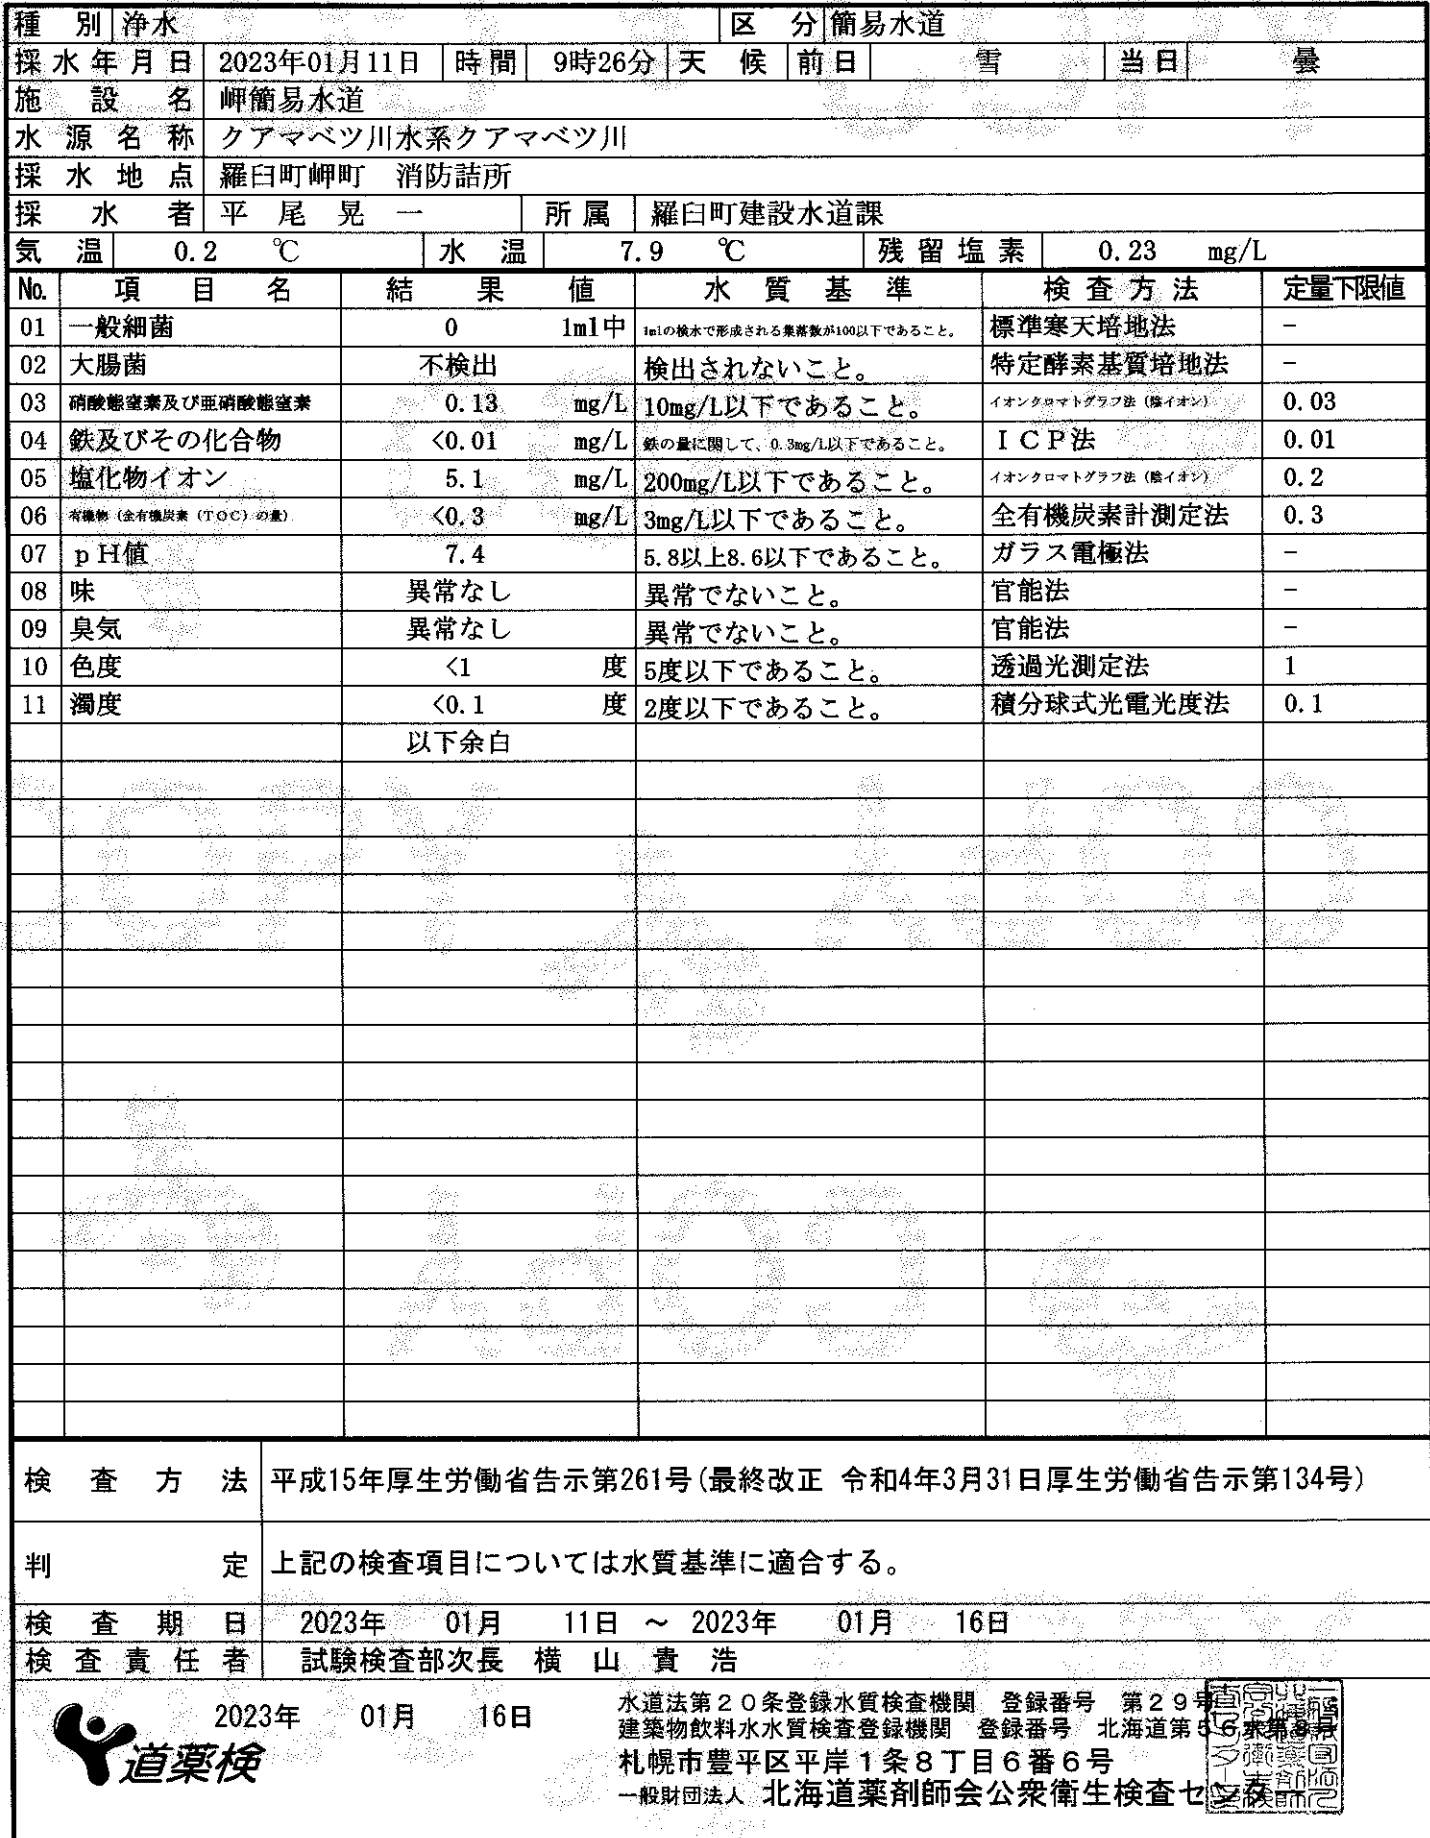 種 別 浄水 区 分 簡易水道
採水年月日 2023年01月11日 時間 9時26分 天 候 前日 雪 当日 曇
施 設 名 岬簡易水道
水 源 名 称 クアマベツ川水系クアマベツ川
採 水 地 点 羅臼町岬町 消防詰所
採 水 者 平 尾 晃 一 所属 羅臼町建設水道課
気 温 0.2 ℃ 水 温 7.9 ℃ 残留塩素 0.23 mg/L
No. 項 目 名 結 果 値 水 質 基 準 検査方法 定量下限値
01 一般細菌 0 1ml中 1mlの検水で形成される集落数が100以下であること。 標準寒天培地法 −
02 大腸菌 不検出 検出されないこと。 特定酵素基質培地法 −
03 硝酸態窒素及び亜硝酸態窒素 0.13 mg/L 10mg/L以下であること。 イオンクロマトグラフ法（陰イオン） 0.03
04 鉄及びその化合物 <0.01 mg/L 鉄の量に関して、0.3mg/L以下であること。 ＩＣＰ法 0.01
05 塩化物イオン 5.1 mg/L 200mg/L以下であること。 イオンクロマトグラフ法（陰イオン） 0.2
06 有機物（全有機炭素（ＴＯＣ）の量） <0.3 mg/L 3mg/L以下であること。 全有機炭素計測定法 0.3
07 ｐＨ値 7.4 5.8以上8.6以下であること。 ガラス電極法 −
08 味 異常なし 異常でないこと。 官能法 −
09 臭気 異常なし 異常でないこと。 官能法 −
10 色度 <1 度 5度以下であること。 透過光測定法 1
11 濁度 <0.1 度 2度以下であること。 積分球式光電光度法 0.1
以下余白
検 査 方 法 平成15年厚生労働省告示第261号(最終改正 令和4年3月31日厚生労働省告示第134号)
判 定 上記の検査項目については水質基準に適合する。
検 査 期 日 2023年 01月 11日 ～ 2023年 01月 16日
検査責任者 試験検査部次長 横 山 貴 浩
2023年 01月 16日
道薬検
水道法第２０条登録水質検査機関 登録番号 第２９号
建築物飲料水水質検査登録機関 登録番号 北海道第５６水第8号
札幌市豊平区平岸１条８丁目６番６号
一般財団法人 北海道薬剤師会公衆衛生検査センター